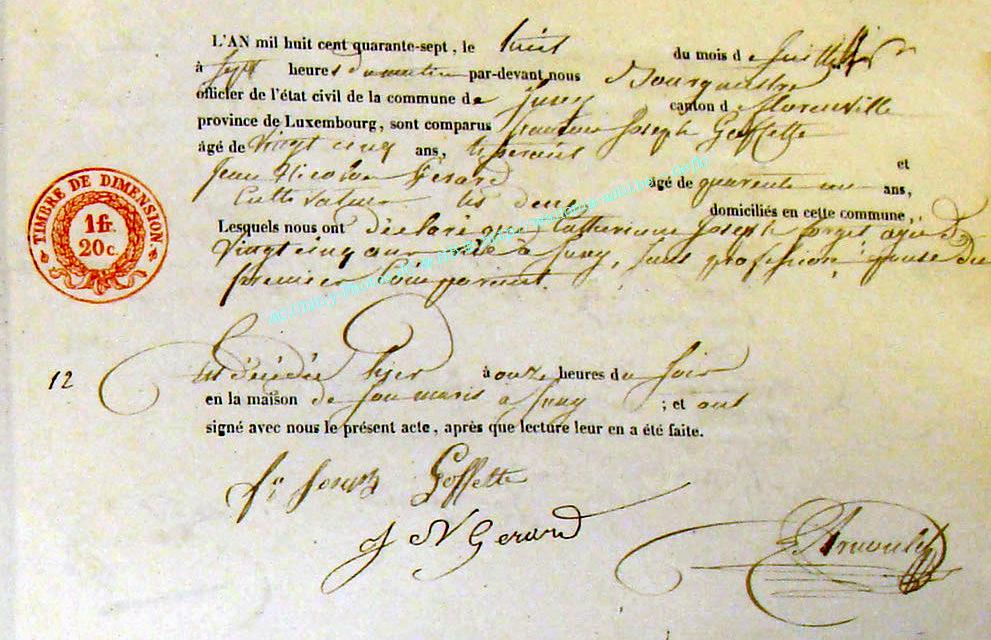 L'AN mil huit cent quarante-sept, le huit du mois de Juillet
à sept heures du matin par-devant nous Bourgmestre
officier de l'état civil de la commune de Izel canton de florenville
province de Luxembourg, sont comparus francois Joseph Goffette
âgé de vingt cinq ans, tisserand et
Jean Nicolas Gerard âgé de quarante un ans,
Cultivateur les deux domiciliés en cette commune,
Lesquels nous ont déclaré que Catherinne Joseph forget agée de
vingt cinq ans née à, sans profession, épouse du
premier Comparant.
12
est décédée hier à onze heures du soir
en la maison de son maris à ; et ont
signé avec nous le présent acte, après que lecture leur en a été faite.
fs Joseph Goffette
J N Gerard
TIMBRE DE DIMENSION.
1fr.
20c.